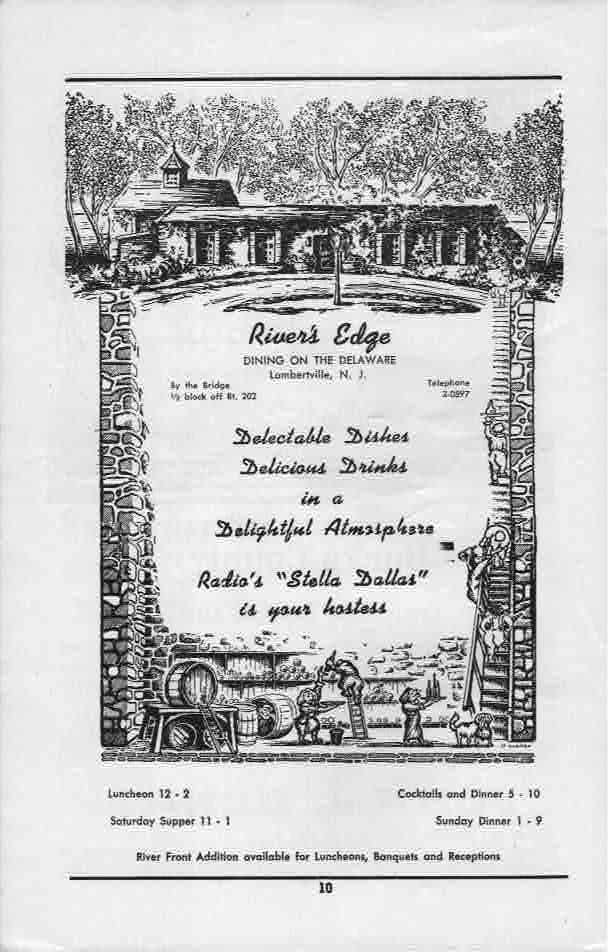 River's Edge
DINING ON THE DELAWARE
Lambertville, N. J.
By the Bridge
½ block off Rt. 202
Telephone
2-0897
Delectable Dishes
Delicious Drinks
in a
Delightful Atmosphere
Radio's "Stella Dallas"
is your hostess
Luncheon 12 - 2
Cocktails and Dinner 5 - 10
Saturday Supper 11 - 1
Sunday Dinner 1 - 9
River Front Addition available for Luncheons, Banquets and Receptions
10